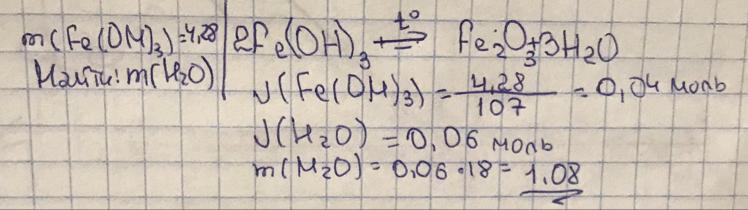 m(Fe(OH)₃)=4,28
Найти: m(H₂O)
2Fe(OH)₃ ⇌ t° Fe₂O₃+3H₂O
ν(Fe(OH)₃) = 4,28/107 = 0,04 моль
ν(H₂O) = 0,06 моль
m(H₂O) = 0,06·18 = 1,08